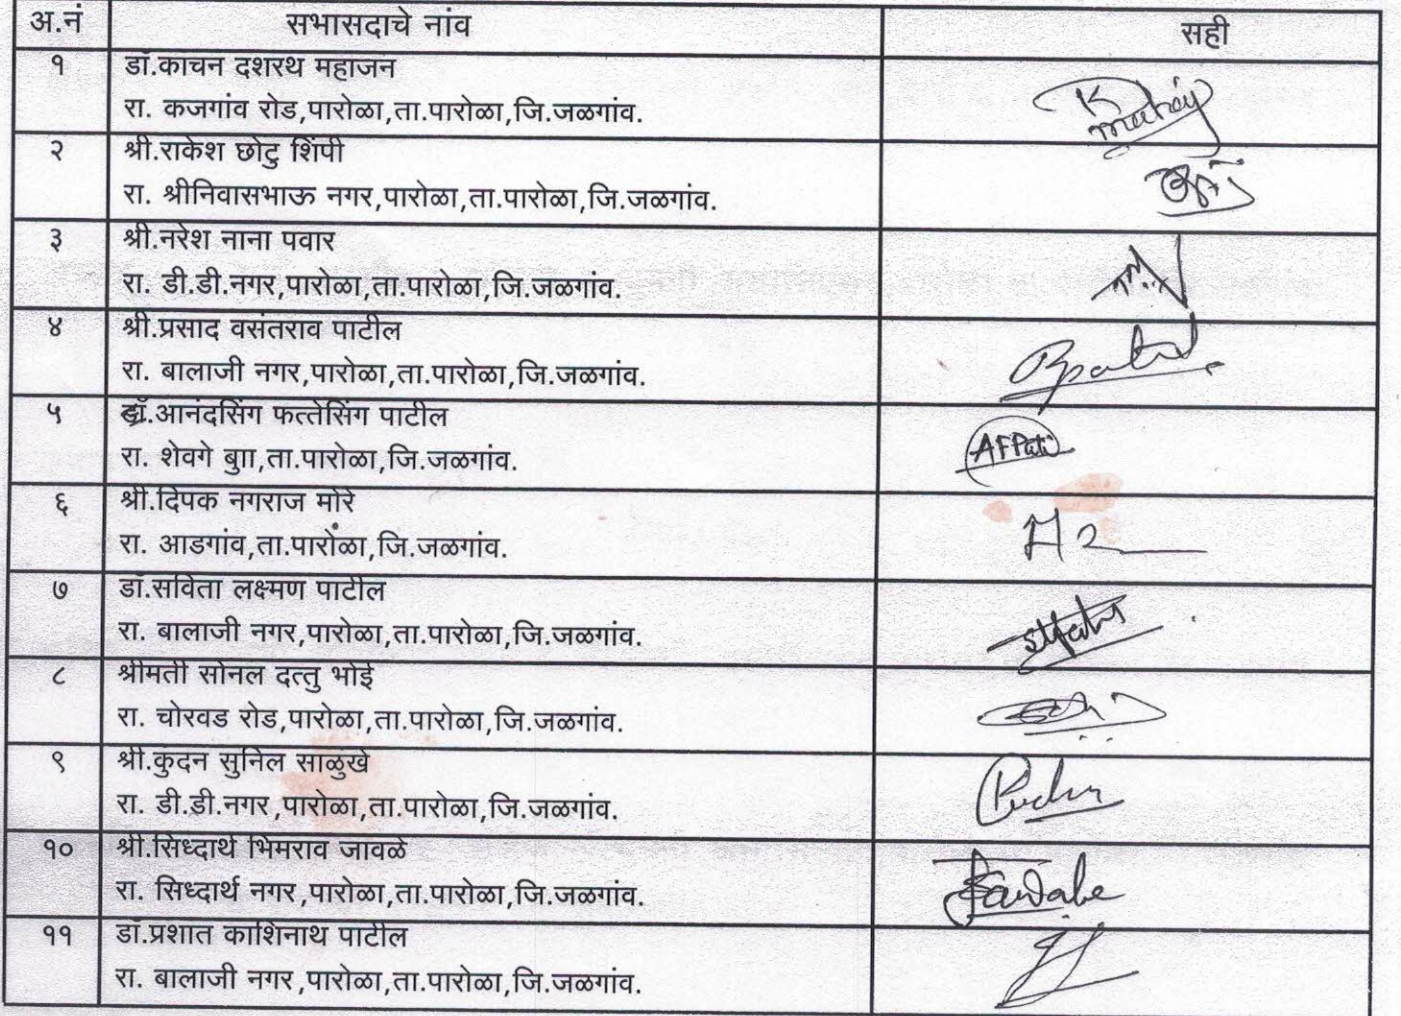 अ.नं सभासदाचे नांव सही
१ डॉ.काचन दशरथ महाजन
रा. कजगांव रोड,पारोळा,ता.पारोळा,जि.जळगांव.
२ श्री.राकेश छोटु शिंपी
रा. श्रीनिवासभाऊ नगर,पारोळा,ता.पारोळा,जि.जळगांव.
३ श्री.नरेश नाना पवार
रा. डी.डी.नगर,पारोळा,ता.पारोळा,जि.जळगांव.
४ श्री.प्रसाद वसंतराव पाटील
रा. बालाजी नगर,पारोळा,ता.पारोळा,जि.जळगांव.
५ डॉ.आनंदसिंग फत्तेसिंग पाटील
रा. शेवगे बुाा,ता.पारोळा,जि.जळगांव.
AFPatil
६ श्री.दिपक नगराज मोरे
रा. आडगांव,ता.पारोळा,जि.जळगांव.
७ डॉ.सविता लक्ष्मण पाटील
रा. बालाजी नगर,पारोळा,ता.पारोळा,जि.जळगांव.
८ श्रीमती सोनल दत्तु भोई
रा. चोरवड रोड,पारोळा,ता.पारोळा,जि.जळगांव.
९ श्री.कुदन सुनिल साळुखे
रा. डी.डी.नगर,पारोळा,ता.पारोळा,जि.जळगांव.
१० श्री.सिध्दार्थ भिमराव जावळे
रा. सिध्दार्थ नगर,पारोळा,ता.पारोळा,जि.जळगांव.
११ डॉ.प्रशात काशिनाथ पाटील
रा. बालाजी नगर,पारोळा,ता.पारोळा,जि.जळगांव.